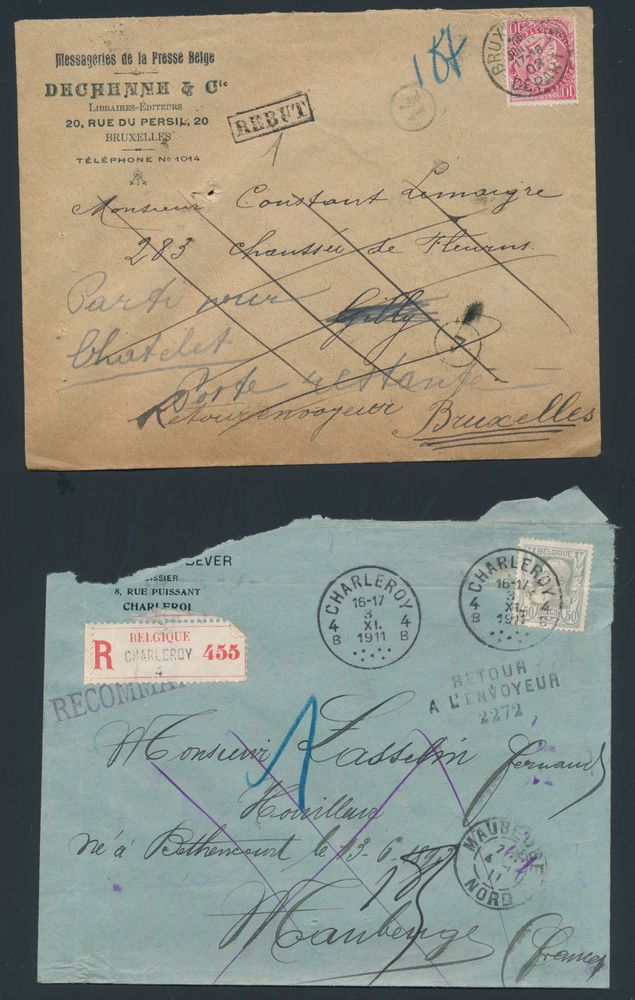 Messageries de la Presse Belge
DECHENNE & Cie
LIBRAIRES-ÉDITEURS
20, RUE DU PERSIL, 20
BRUXELLES
TÉLÉPHONE No 1014
REBUT
1
187
17-18
03
DEPART
10 10
Monsieur Constant Lemaigre
283 chaussée de Fleurus
Gilly
Parti pour
Chatelet
Poste restante
Retour envoyeur Bruxelles
BEVER
ISSIER
8, RUE PUISSANT
CHARLEROI
R BELGIQUE 455
CHARLEROY
4
RECOMMA
CHARLEROY
16-17
4 3 4
B XI. B
1911
CHARLEROY
16-17
4 3 4
B XI. B
1911
BELGIQUE
50 50
RETOUR
A L'ENVOYEUR
2272
Monsieur Lasselin Fernand
Houilleur
né à Bethencourt le 13-6-1893
MAUBEUGE
4
11
NORD
Maubeuge (France)